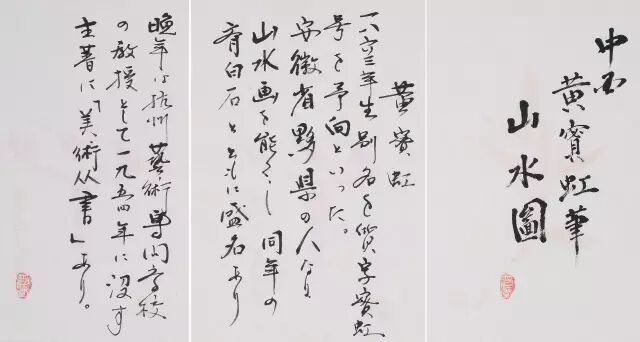 中国
黄賓虹筆
山水圖
黄賓虹
一八六三年生別名を質字賓虹
号を予向といった。
安徽省黟県の人なり
山水画を能くし同年の
斉白石とともに盛名あり
晩年は杭州藝術専門学校
の教授として一九五四年に没す
主著に「美術丛書」あり。